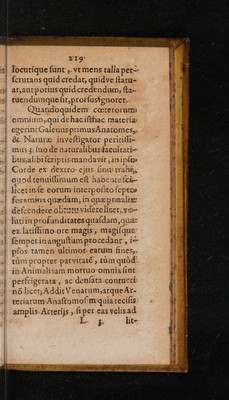 219
locutique sunt, vt mens talia per-
scrutans quid credat, quidve statu-
at, aut potius quid credendum, sta-
tuendumque sit, prorsus ignoret.
Quandoquidem cœterorum
omnium, qui de hac isthac materia
egerint Galenus primus Anatomes,
& Naturæ investigator peritissi-
mus; suo de naturalibus facultati-
bus, alibi scriptis mandavit, in ipso
Corde ex dextro ejus sinu trahi,
quod tenuissimum est habente sci-
licet in se eorum interposito septo
foramina quædam, in quæ præaltæ
descendere obtutu videre licet, ve-
luti in profunditates quasdam, quæ
ex latissimo ore magis, magisque
semper in angustum procedant,
psos tamen ultimos earum fines,
tùm propter parvitatē, tùm quòd
in Animali iam mortuo omnia sint
perfrigerata, ac densata contueri
nō licet, Addit Venarum, atque Ar-
teriarum Anastomosim quia recisis
amplis Arterijs, si per eas velis ad
L 3 lit-